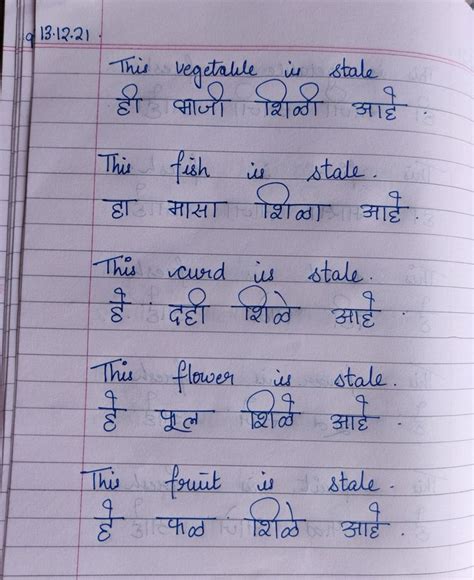 13.12.21
This vegetable is stale
ही भाजी शिळी आहे .
This fish is stale .
हा मासा शिळा आहे .
This curd is stale .
हे दही शिळे आहे .
This flower is stale .
हे फूल शिळे आहे .
This fruit is stale .
हे फळ शिळे आहे .